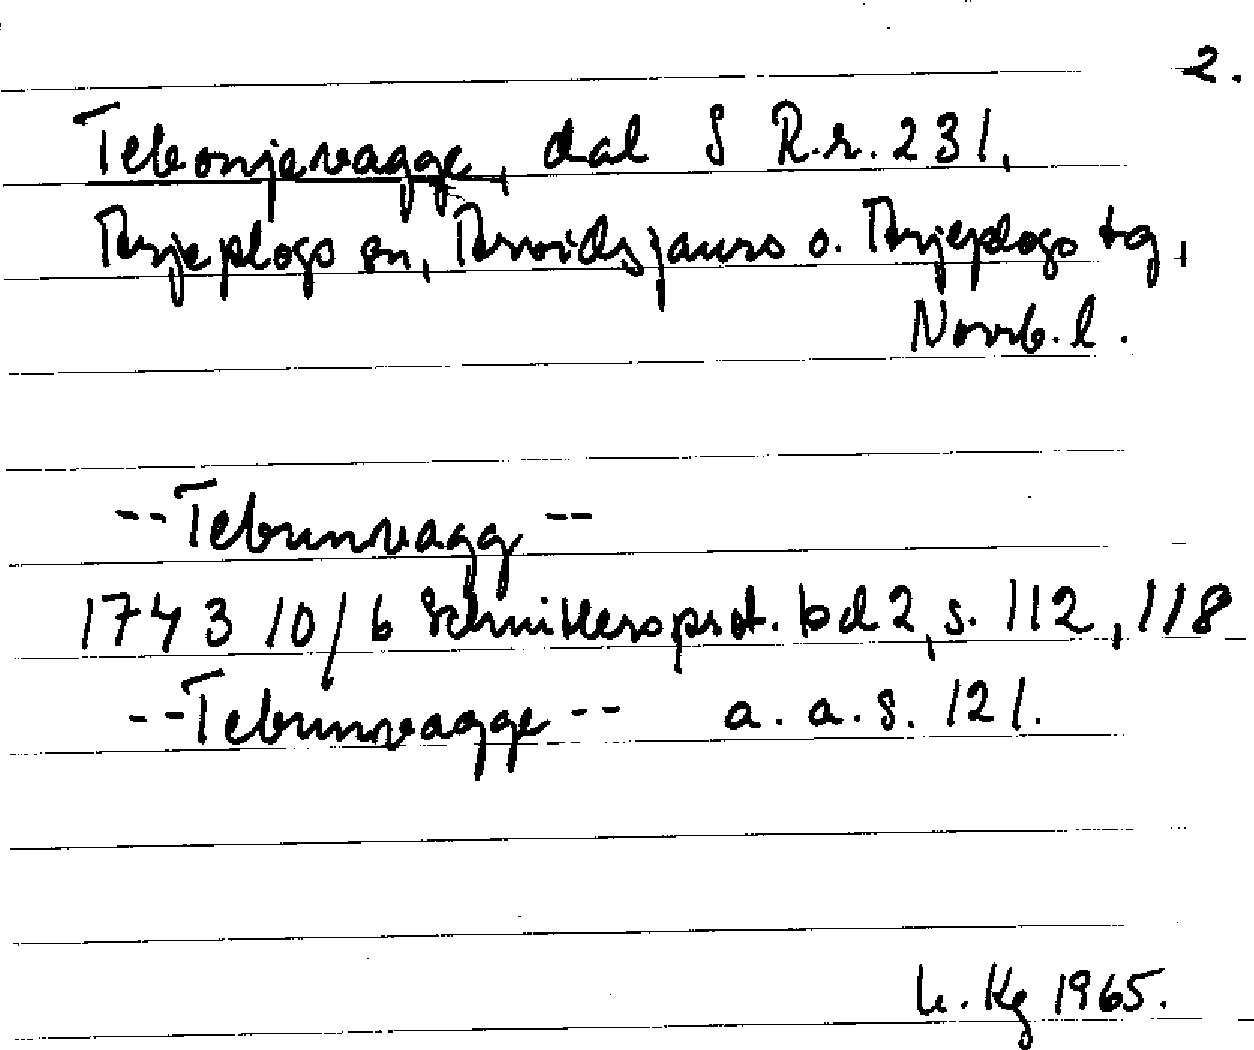 2.
Tebonjevagge, dal S R.r. 231,
Arjeplogs sn, Arvidsjaurs o. Arjeplogs tg,
Norrb. l.
--Tebunvagg--
1743 10/6 Schnitlers prot. bd 2, s. 112, 118
--Tebunvagge-- a. a. s. 121.
Kg 1965.